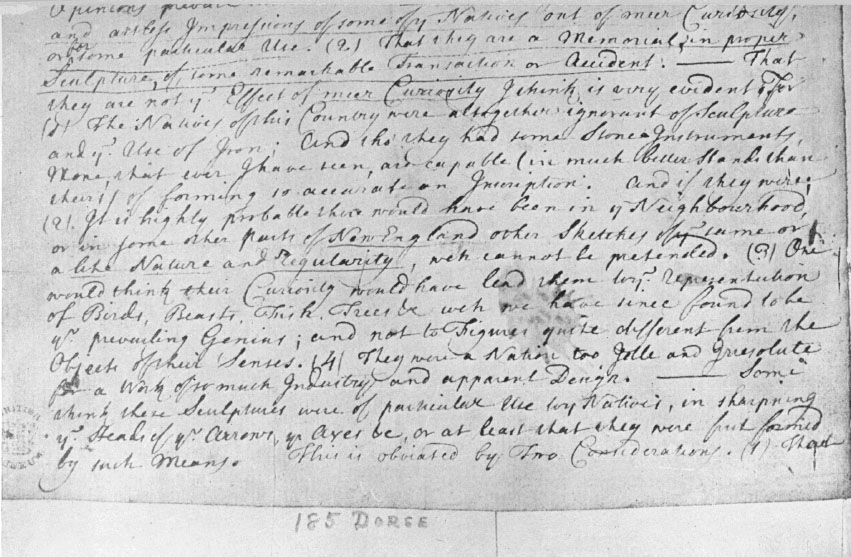 Opinions prevail
and artless Impressions of some of yͤ Natives out of meer Curiosity,
or for some particular Use. (2.) That they are a Memorial, in proper
Sculpture, of some remarkable Transaction or Accident. — That
they are not yͤ Effect of meer Curiosity I think is very evident; For
(1) The Natives of this Country were altogether ignorant of Sculpture
and yͤ Use of Iron; And tho' they had some Stone Instruments,
None, that ever I have seen, are capable (in much better Hands than
theirs) of forming so accurate an Inscription. And if they were;
(2). It is highly probable there would have been in yͤ Neighbourhood,
or in some other Parts of New England other Sketches of yͤ same or
a like Nature and Regularity, wch cannot be pretended. (3) One
would think their Curiosity would have lead them to yͤ Representation
of Birds, Beasts, Fish, Trees &c wch we have since found to be
yͤ prevailing Genius; and not to Figures quite different from the
Objects of their Senses. (4) They were a Nation too Idle and Irresolute
for a Work of so much Industry and apparent Design. — Some
think these Sculptures were of particular Use to yͤ Natives, in sharpning
yͤ Heads of yͤ Arrows, yͤ Axes &c, or at least that they were first formed
by such Means. This is obviated by Two Considerations. (1) That
185 DORSE